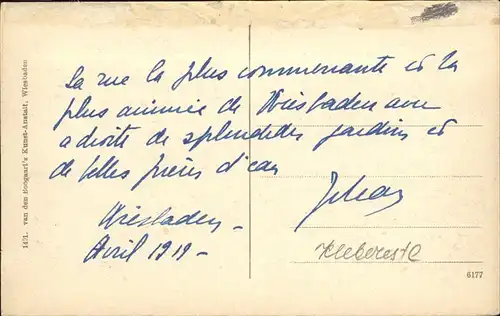 la rue la plus commerçante et la
plus animée de Wiesbaden avec
a droite de splendides jardins et
de belles pièces d'eau
Jehan
Wiesbaden –
Avril 1919 –
Klebereste
6177
1471. van dem Boogaart's Kunst-Anstalt, Wiesbaden